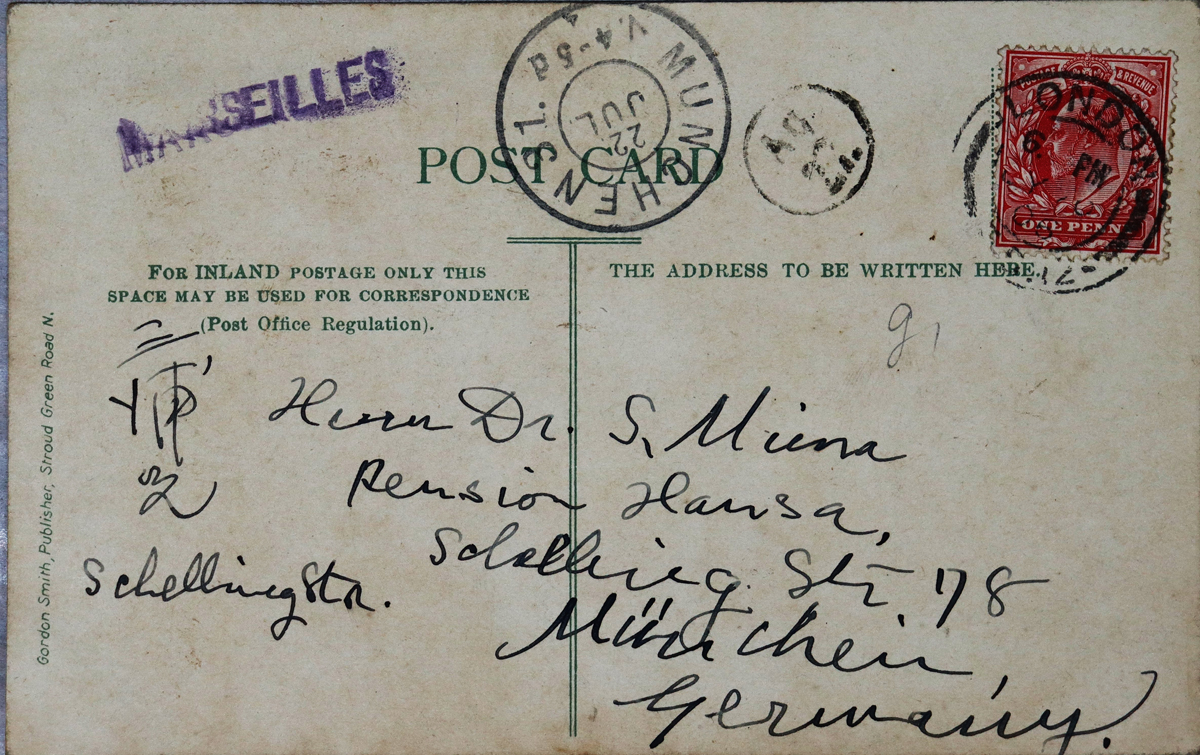 MARSEILLES
MUNCHEN 31.
22 JUL
V4-5d
LONDON
PM
POSTAGE & REVENUE
ONE PENNY
POST CARD
FOR INLAND POSTAGE ONLY THIS
SPACE MAY BE USED FOR CORRESPONDENCE
(Post Office Regulation).
THE ADDRESS TO BE WRITTEN HERE.
Gordon Smith, Publisher, Stroud Green Road N.
Herrn Dr. S. Miura
Pension Hansa,
Schelling Str. 178
München,
Germany.
Schellingstr.